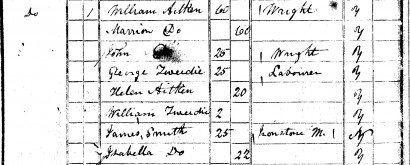 Do 1 William Aitken 60 Wright y
Marrion Do 60 y
John Do 25 Wright y
George Tweedie 25 Labourer y
Helen Aitken 20 y
William Tweedie 2 y
James Smith 25 Ironstone M. N
Isabella Do 22 y